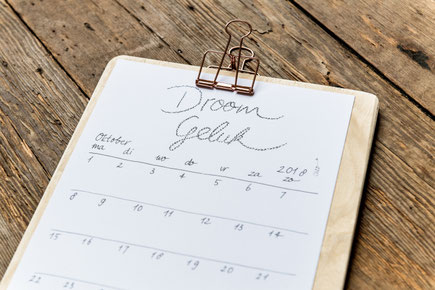 Droom
Geluk
Oktober 2018
ma di wo do vr za zo
1 2 3 4 5 6 7
8 9 10 11 12 13 14
15 16 17 18 19 20 21
22 23 24 25